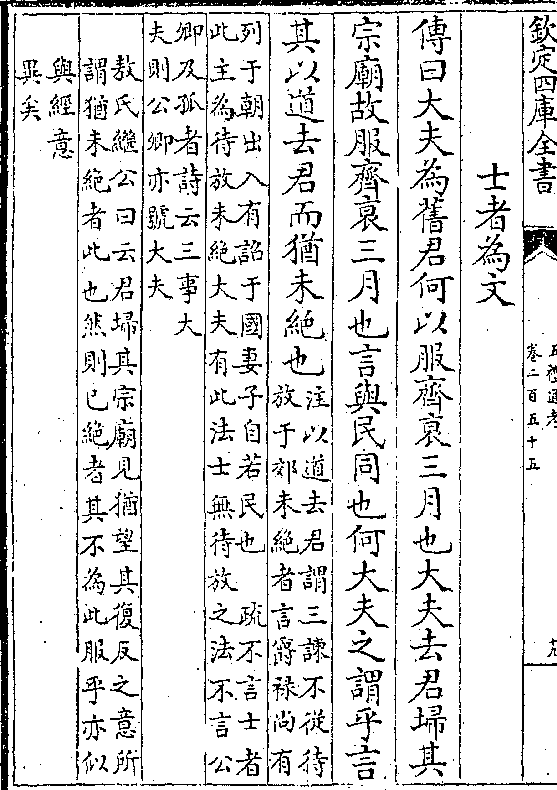 欽定四庫全書
五禮通考
卷二百五十五
士者為文
傳曰大夫為舊君何以服齊衰三月也大夫去君埽其
宗廟故服齊衰三月也言與民同也何大夫之謂乎言
其以道去君而猶未絕也
注以道去君謂三諫不從待
放于郊未絕者言爵祿尚有
列于朝出入有詔于國妻子自若民也 疏不言士者
此主為待放未絕大夫有此法士無待放之法不言公
卿及孤者詩云三事大
夫則公卿亦號大夫
敖氏繼公曰云君埽其宗廟見猶望其復反之意所
謂猶未絕者此也然則已絕者其不為此服乎亦似
與經意
異矣